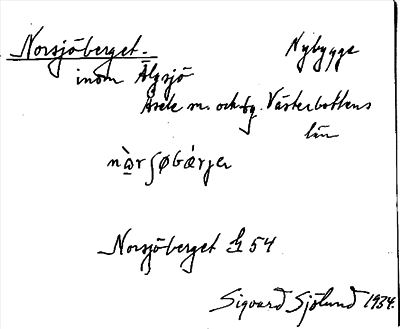 Norsjöberget. Nybygge
inom Älgsjö
Åsele sn. och sg. Västerbottens
län
Norsjöberget 54
Sigvard Sjölund 1934.